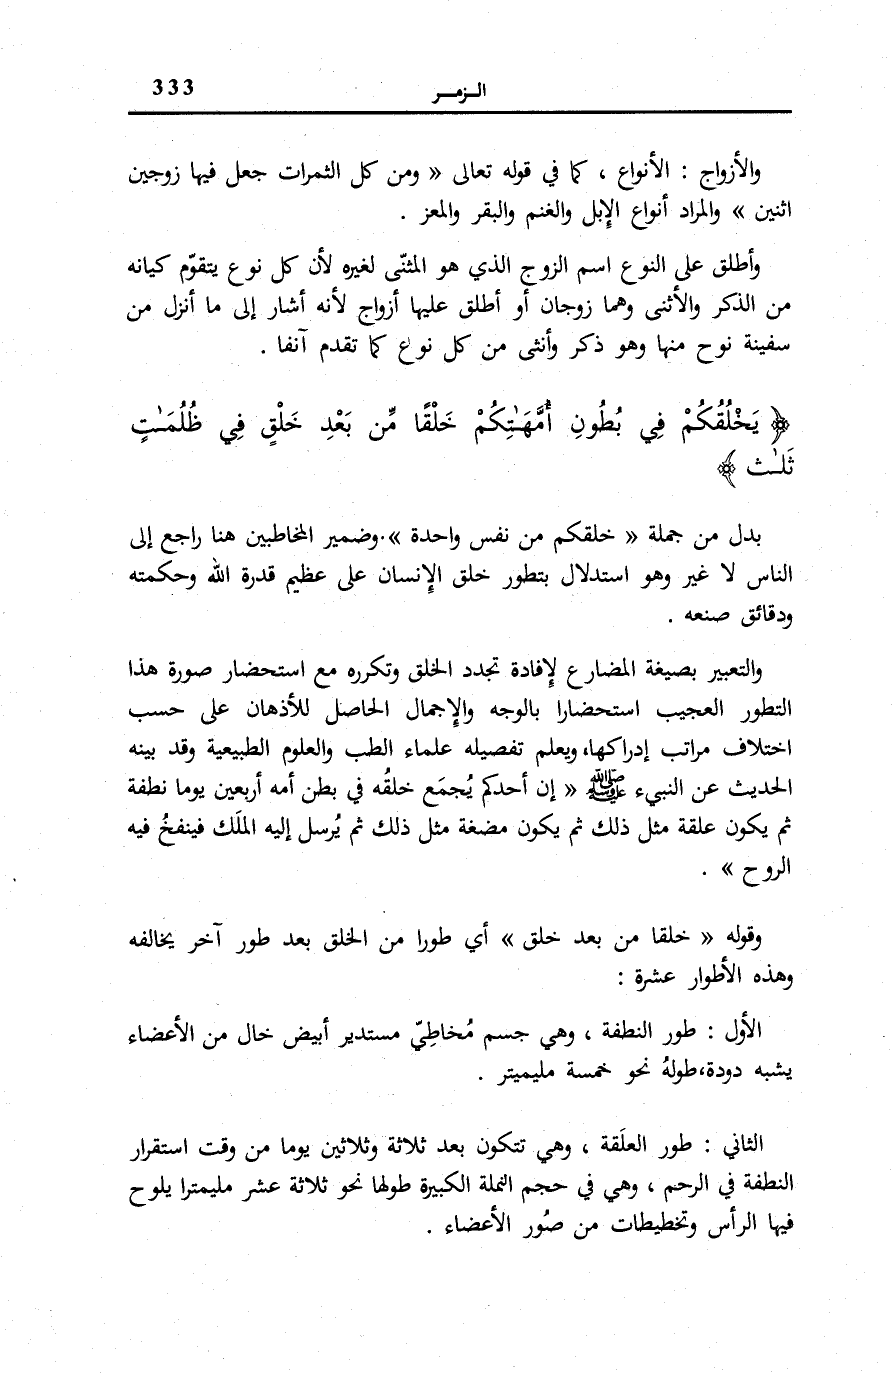 الـزمـر 333
والأزواج : الأنواع ، كما في قوله تعالى « ومن كل الثمرات جعل فيها زوجين
اثنين » والمراد أنواع الإبل والغنم والبقر والمعز .
وأطلق على النوع اسم الزوج الذي هو المثنّى لغيره لأن كل نوع يتقوّم كيانه
من الذكر والأنثى وهما زوجان أو أطلق عليها أزواج لأنه أشار إلى ما أنزل من
سفينة نوح منها وهو ذكر وأنثى من كل نوع كما تقدم آنفا .
﴿ يَخْلُقُكُمْ فِي بُطُونِ أُمَّهَـٰتِكُمْ خَلْقًا مِّن بَعْدِ خَلْقٍ فِي ظُلُمَـٰتٍ
ثَلَـٰث ﴾
بدل من جملة « خلقكم من نفس واحدة ».وضمير المخاطبين هنا راجع إلى
الناس لا غير وهو استدلال بتطور خلق الإنسان على عظيم قدرة الله وحكمته
ودقائق صنعه .
والتعبير بصيغة المضارع لإفادة تجدد الخلق وتكرره مع استحضار صورة هذا
التطور العجيب استحضارا بالوجه والإجمال الحاصل للأذهان على حسب
اختلاف مراتب إدراكها، ويعلم تفصيله علماء الطب والعلوم الطبيعية وقد بينه
الحديث عن النبيء ﷺ « إن أحدكم يُجمَع خلقُه في بطن أمه أربعين يوما نطفة
ثم يكون علقة مثل ذلك ثم يكون مضغة مثل ذلك ثم يُرسل إليه الملَك فينفخُ فيه
الروح » .
وقوله « خلقا من بعد خلق » أي طورا من الخلق بعد طور آخر يخالفه
وهذه الأطوار عشرة :
الأول : طور النطفة ، وهي جسم مُخاطِيّ مستدير أبيض خال من الأعضاء
يشبه دودة،طولهُ نحو خمسة مليميتر .
الثاني : طور العلَقة ، وهي تتكون بعد ثلاثة وثلاثين يوما من وقت استقرار
النطفة في الرحم ، وهي في حجم النملة الكبيرة طولها نحو ثلاثة عشر مليمترا يلوح
فيها الرأس وتخطيطات من صُور الأعضاء .